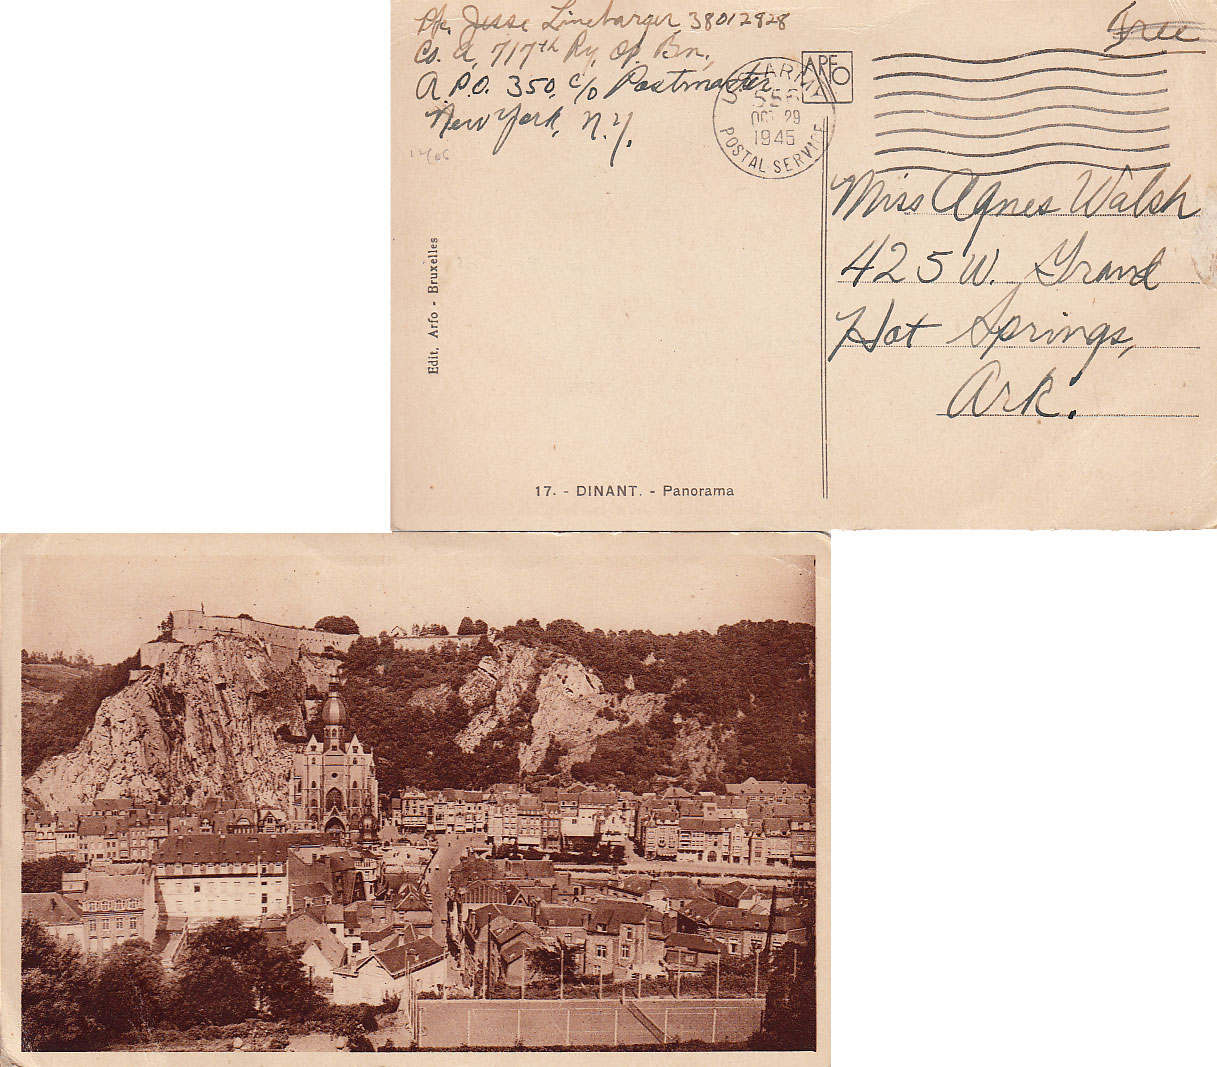 Pfc. Jesse Linebarger 38012928
Co. A, 717th Ry. Op. Bn.,
A.P.O. 350, c/o Postmaster
New York, N.Y.
Free
ARFO
U.S. ARMY
556
OCT 29
1945
POSTAL SERVICE
Miss Agnes Walsh
425 W. Grand
Hot Springs,
Ark.
Edit. Arfo - Bruxelles
17. - DINANT. - Panorama